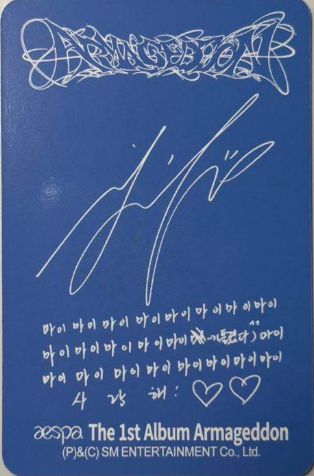 ARMAGEDDON
마이 마이 마이 마이 마이 마이 마이 마이
마이 마이 마이 마이 마이 마이
마이 마이 마이 마이 마이 마이 마이 마이
사 랑 해 : ♡♡
aespa The 1st Album Armageddon
(P)&(C) SM ENTERTAINMENT Co., Ltd.